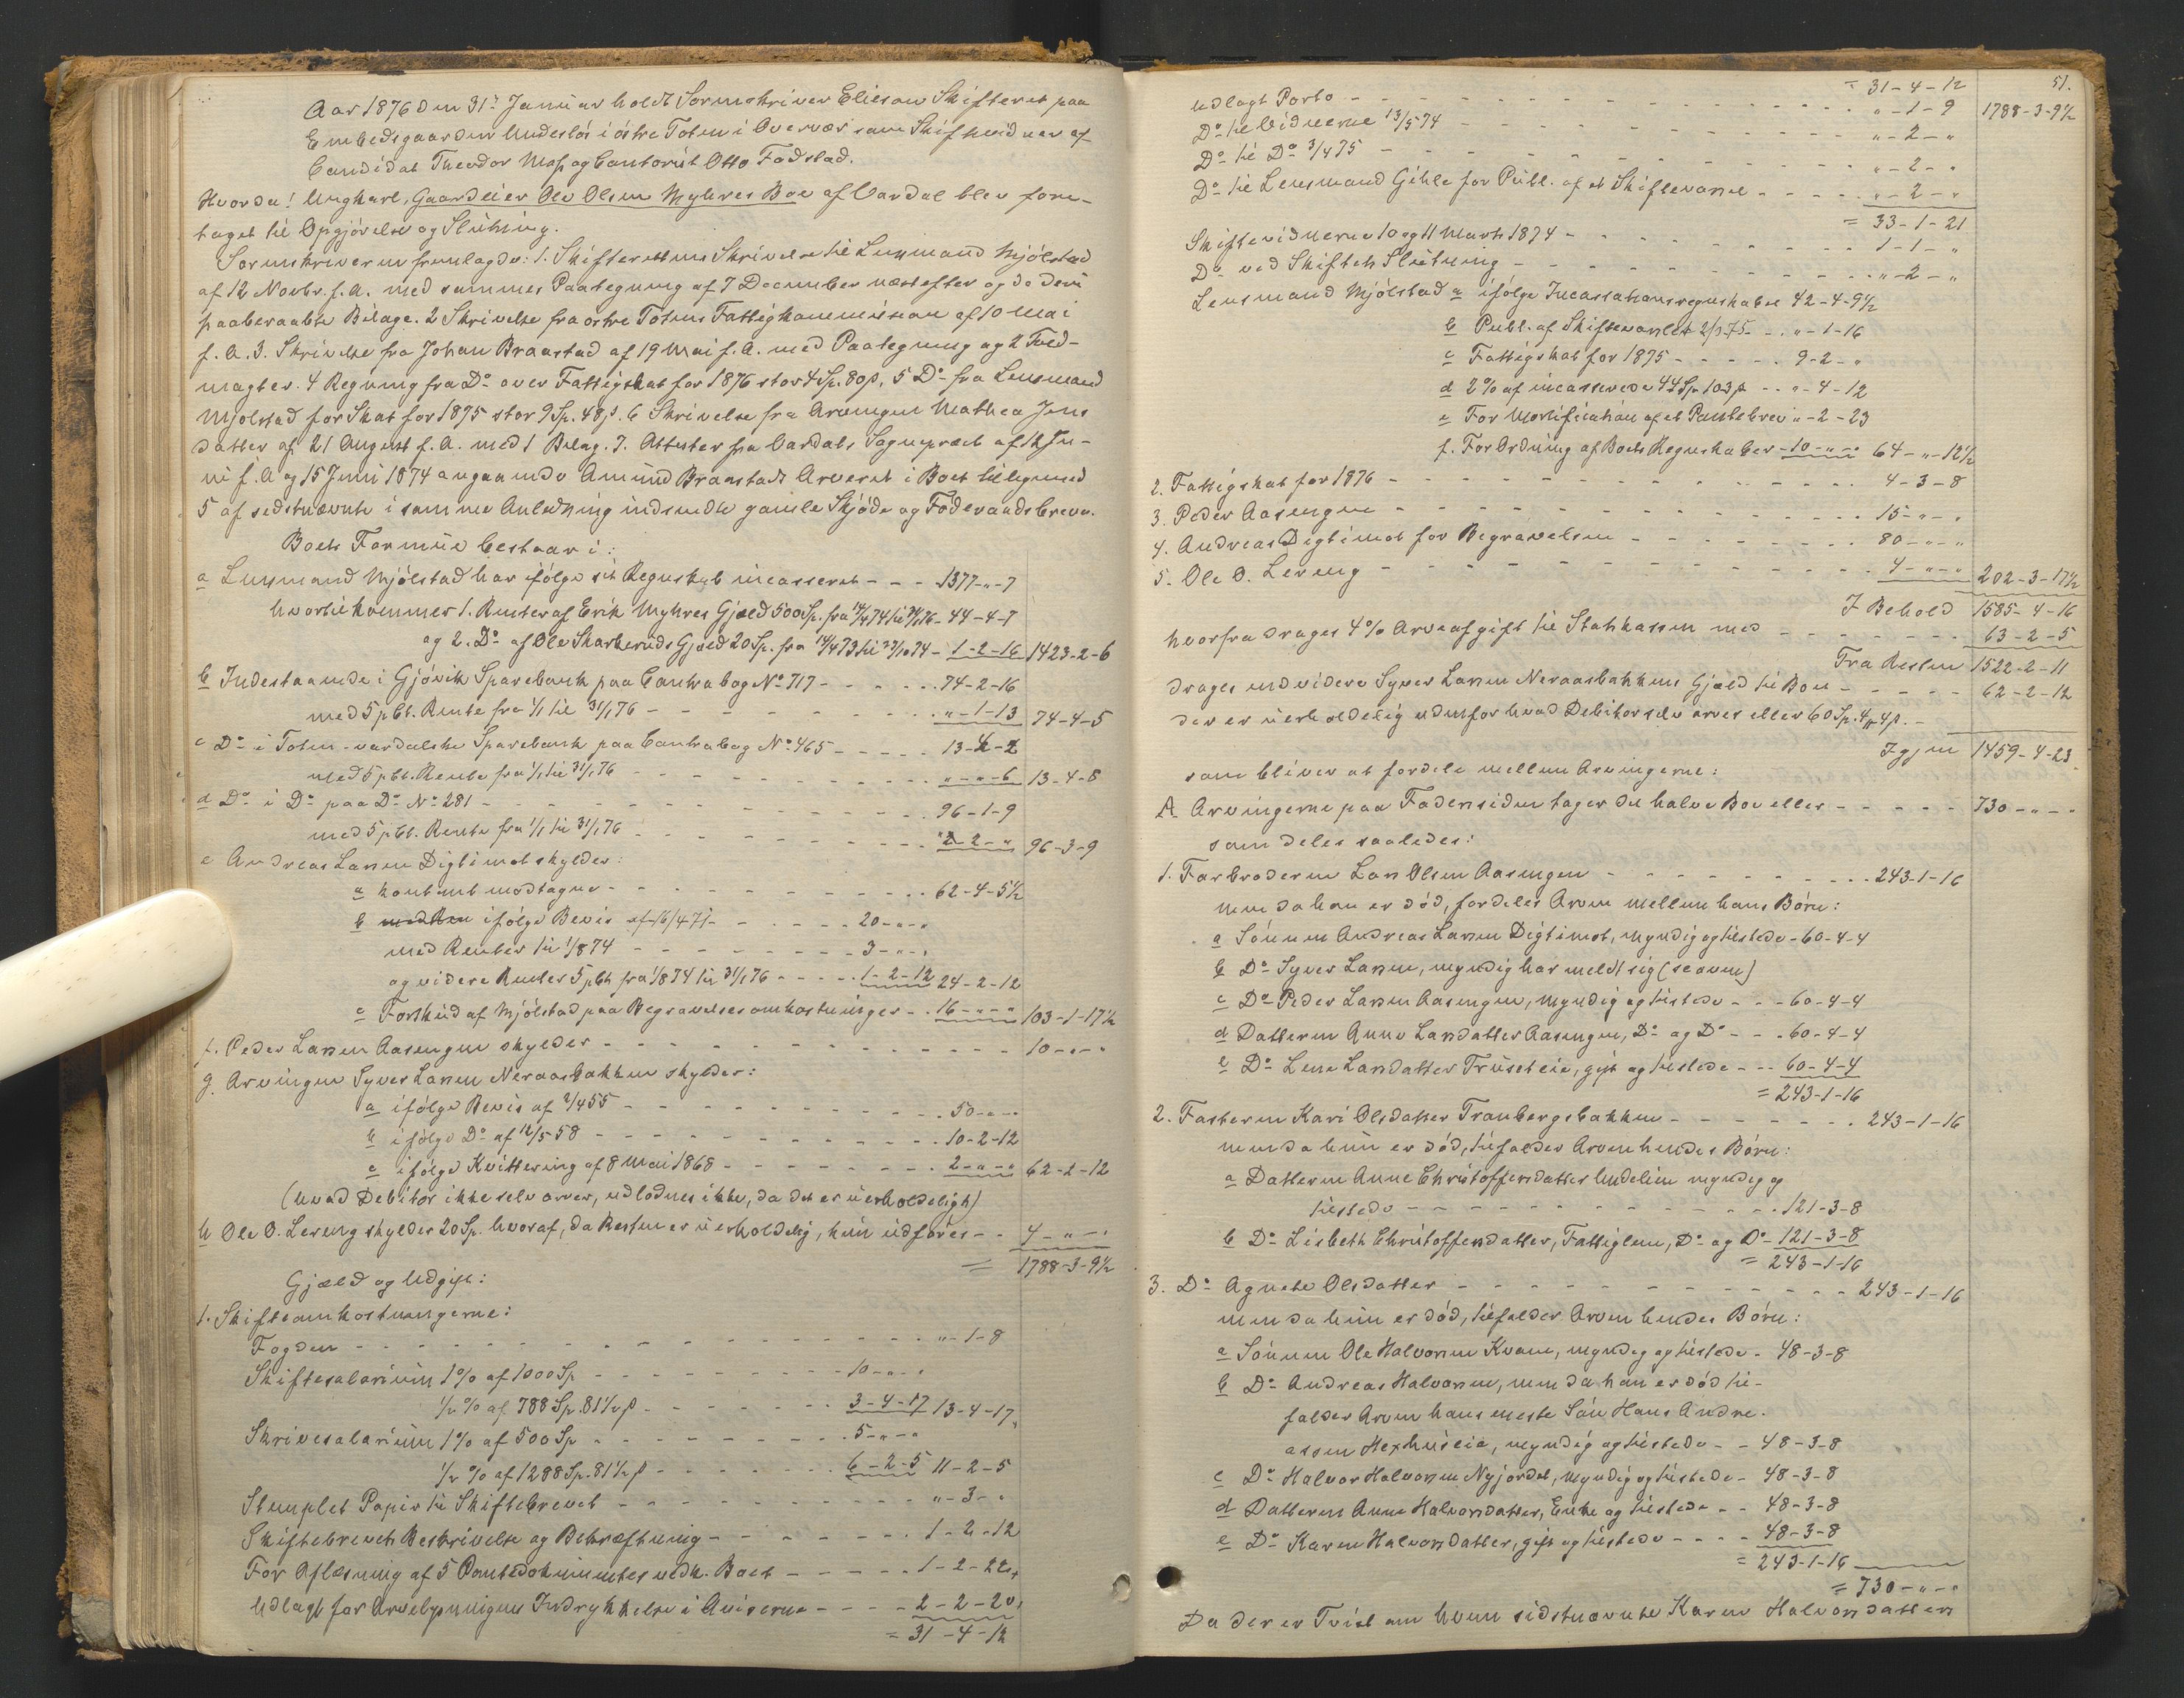 Aar 1876 den 31te Januar holdt Sorenskriver Eliesen Skifteret paa
Embedsgaarden Undeslös i östre Toten i Overvær som Skiftevidner af
Candidat Theodor Moss og Contorist Otto Fodstad.
Hvorda! Ungkarl, Gaardeier Ole Olsen Myhres Bo af Vardal blev fore-
taget til Opgjörelse og Slutning.
Sorenskriveren fremlagde: 1. Skifterettens Skrivelse til Lensmand Mjölstad
af 12 Novbr. f. A. med sammes Paategning af 7 December næstefter og de deri
paaberaabte Bilage. 2 Skrivelse fra östre Totens Fattigkommission af 10 Mai
f. A. 3. Skrivelse fra Johan Braastad af 19 Mai f. A. med Paategning og 2 Fuld-
magter. 4 Regning fra Do over Fattigskat for 1876 stor 4 Sp. 80 s, 5 Do fra Lensmand
Mjölstad for Skat for 1875 stor 9 Sp. 48 s. 6 Skrivelse fra Arvingen Mathea Jens
datter af 21 August f. A. med 1 Bilag. 7. Attester fra Vardals Sognepræst af 12 Ju-
ni f. A og 15 Juni 1874 angaaende Amund Braastads Arveret i Boet tilligemed
5 af sidstnævnte i samme Anledning indsendte gamle Skjöde og Föderaadsbreve.
Boets Formue bestaar i:
a Lensmand Mjölstad har ifölge sit Regnskab incasseret - - - 1377-"-7
hvortil kommer 1. Renter af Erik Myhres Gjæld 500 Sp. fra 14/4 74 til 31/1 76 - 44-4-7
og 2. Do af Ole Skarkeruds Gjæld 20 Sp. fra 14/4 73 til 23/10 74 - 1-2-16 1423-2-6
b Indestaaende i Gjövik Sparebank paa Contrabog No 717 - - - - 74-2-16
med 5 pCt. Rente fra 1/1 til 31/1 76 - - - - - "-1-13 74-4-5
c Do i Toten-vardalske Sparebank paa Contrabog No 465 - - - - 13-4-2
med 5 pCt. Rente fra 1/1 til 31/1 76 - - - - "-"-6 13-4-8
d Do i Do paa Do No 281 - - - - 96-1-9
med 5 pCt. Rente fra 1/1 til 31/1 76 - - - - "-2-" 96-3-9
e Andreas Larsen Digtimot skylder:
a kontant modtagne - - - - 62-4-5½
b ifölge Bevis af 16/4 71 - - - - 20-"-"
med Renter til 1/8 74 - - - - 3-"-"
og videre Renter 5 pCt fra 1/8 74 til 31/1 76 - - - - 1-2-12 24-2-12
c Forskud af Mjölstad paa Begravelsesomkostninger - - 16-"-" 103-1-17½
f. Peder Larsen Aasengen skylder - - - - 10-"-"
g. Arvingen Syver Larsen Neraasbakken skylder:
a ifölge Bevis af 2/4 55 - - - - 50-"-"
b ifölge Do af 12/5 58 - - - - 10-2-12
c ifölge Kvittering af 8 Mai 1868 - - - - 2-"-" 62-2-12
(hvad Debitor ikke selv arver, udloddes ikke, da det er uerholdeligt)
h Ole O. Lereng skylder 20 Sp. hvoraf, da Resten er uerholdelig, kun udföres - - 4-"-"
= 1788-3-9½
Gjæld og Udgift:
1. Skifteomkostningerne:
Fogden - - - - "-1-8
Skiftesalarium 1% af 1000 Sp - - - - 10-"-"
½ % af 788 Sp. 81½ s - - - - 3-4-17 13-4-17
Skrivesalarium 1% af 500 Sp - - - - 5-"-"
½ % af 1288 Sp. 81½ s - - - - 6-2-5 11-2-5
Stemplet Papir til Skiftebrevet - - - - "-3-"
Skiftebrevets Beskrivelse og Bekræftning - - - - 1-2-12
For Aflæsning af 5 Pantedokumenter vedk. Boet - - - - 1-2-22
Udlagt for Arvelysningens Indrykkelse i Aviserne - - - - 2-2-20
= 31-4-12
51.
= 31-4-12
1788-3-9½
Udlagt Porto - - - - "-1-9
Do til Vidnerne 13/5 74 - - - - "-2-"
Do til Do 3/4 75 - - - - "-2-"
Do til Lensmand Gihle for Publ. af et Skiftevarsel - - - - "-2-"
= 33-1-21
Skiftevidnerne 10 og 11 Marts 1874 - - - - 1-1-"
Do ved Skiftets Slutning - - - - "-2-"
Lensmand Mjölstad a ifölge Incassationsregnskabet 42-4-9½
b Publ. af Skiftevarslet 2/3 75 - - "-1-16
c Fattigskat for 1875 - - - - 9-2-"
d 2% af incasserede 44 Sp 103 s - - "-4-12
e For Mortification af et Pantebrev "-2-23
f. For Ordning af Boets Regnskaber - 10-"-" 64-"-12½
2. Fattigskat for 1876 - - - - 4-3-8
3. Peder Aasengen - - - - 15-"-"
4. Andreas Digtimot for Begravelsen - - - - 80-"-"
5. Ole O. Lereng - - - - 4-"-" 202-3-17½
I Behold 1585-4-16
hvorfra drages 4% Arveafgift til Statskassen med - - - - 63-2-5
Fra Resten 1522-2-11
drages endvidere Syver Larsen Neraasbakkens Gjæld til Boet - - - - 62-2-12
der er uerholdelig udenfor hvad Debitor selv arver eller 60 Sp. 4 4 s. -
Igjen 1459-4-23
som bliver at fordele mellem Arvingerne:
A Arvingerne paa Fadersiden tager det halve Bo eller - - - - 730-"-"
som deles saaledes:
1. Farbroderen Lars Olsen Aasengen - - - - 243-1-16
men da han er död, fordeles Arven mellem hans Börn:
a Sönnen Andreas Larsen Digtimot, myndig og tilstede - 60-4-4
b Do Syver Larsen, myndig har meldt sig (se oven)
c Do Peder Larsen Aasengen, myndig og tilstede - - - 60-4-4
d Datteren Anne Larsdatter Aasengen, Do og Do - - - 60-4-4
e Do Lene Larsdatter Truseteie, gift og tilstede - - - 60-4-4
= 243-1-16
2. Fasteren Kari Olsdatter Tranbergsbakken - - - - 243-1-16
men da hun er död, tilfalder Arven hendes Börn:
a Datteren Anne Christoffersdatter Undelien myndig og
tilstede - - - - 121-3-8
b Do Lisbeth Christoffersdatter, Fattiglem, Do og Do - 121-3-8
= 243-1-16
3. Do Agnete Olsdatter - - - - 243-1-16
men da hun er död, tilfalder Arven hendes Börn:
a Sönnen Ole Halvorsen Kvam, myndig og tilstede - 48-3-8
b Do Andreas Halvorsen, men da han er död til-
falder Arven hans eneste Sön Hans Andre-
assen Hexhuseie, myndig og tilstede - - 48-3-8
c Do Halvor Halvorsen Nyjordet, myndig og tilstede - 48-3-8
d Datteren Anne Halvorsdatter, Enke og tilstede - - 48-3-8
e Do Karen Halvorsdatter, gift og tilstede - - - - 48-3-8
= 243-1-16
= 730-"-"
Da der er Tvivl om hvem sidstnævnte Karen Halvorsdatter